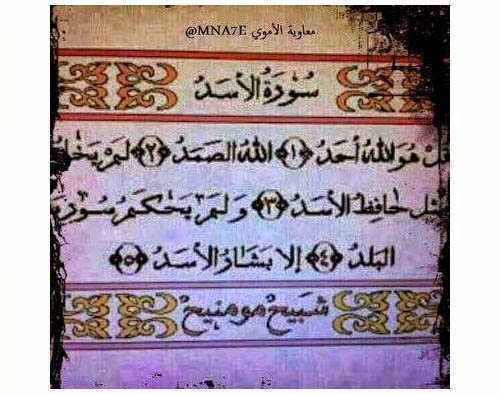 @MNA7E معاوية الأموي
سُورَةُ الأَسَدُ
قُلْ هُوَ اللَّهُ أَحَدٌ ﴿١﴾ اللَّهُ الصَمَدُ ﴿٢﴾ لَمْ يَخْلُ
مِثل حَافِظْ الأَسَدُ ﴿٣﴾ وَلَمْ يَحْكُمُ سُورِ
البَلَدُ ﴿٤﴾ إلا بَشَارُ الأَسَدُ ﴿٥﴾
شبيح مو منيح